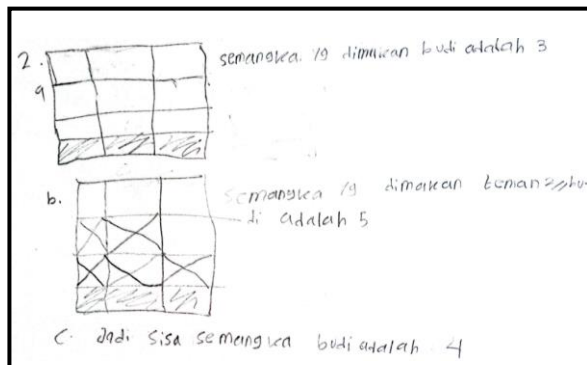 2.
a
semangka yg dimakan budi adalah 3
b.
semangka yg dimakan teman2
di adalah 5
C. Jadi sisa semangka budi adalah 4